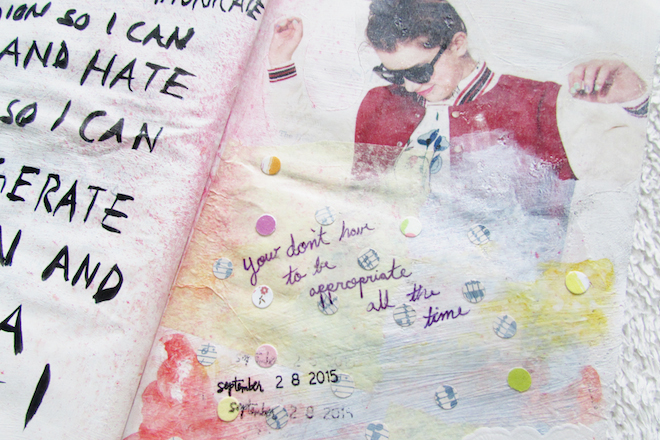 SO I CAN
AND HATE
SO I CAN
AND
A
I
you don't have
to be
appropriate
all the
time
september 2 8 2015
september 2 8 2015